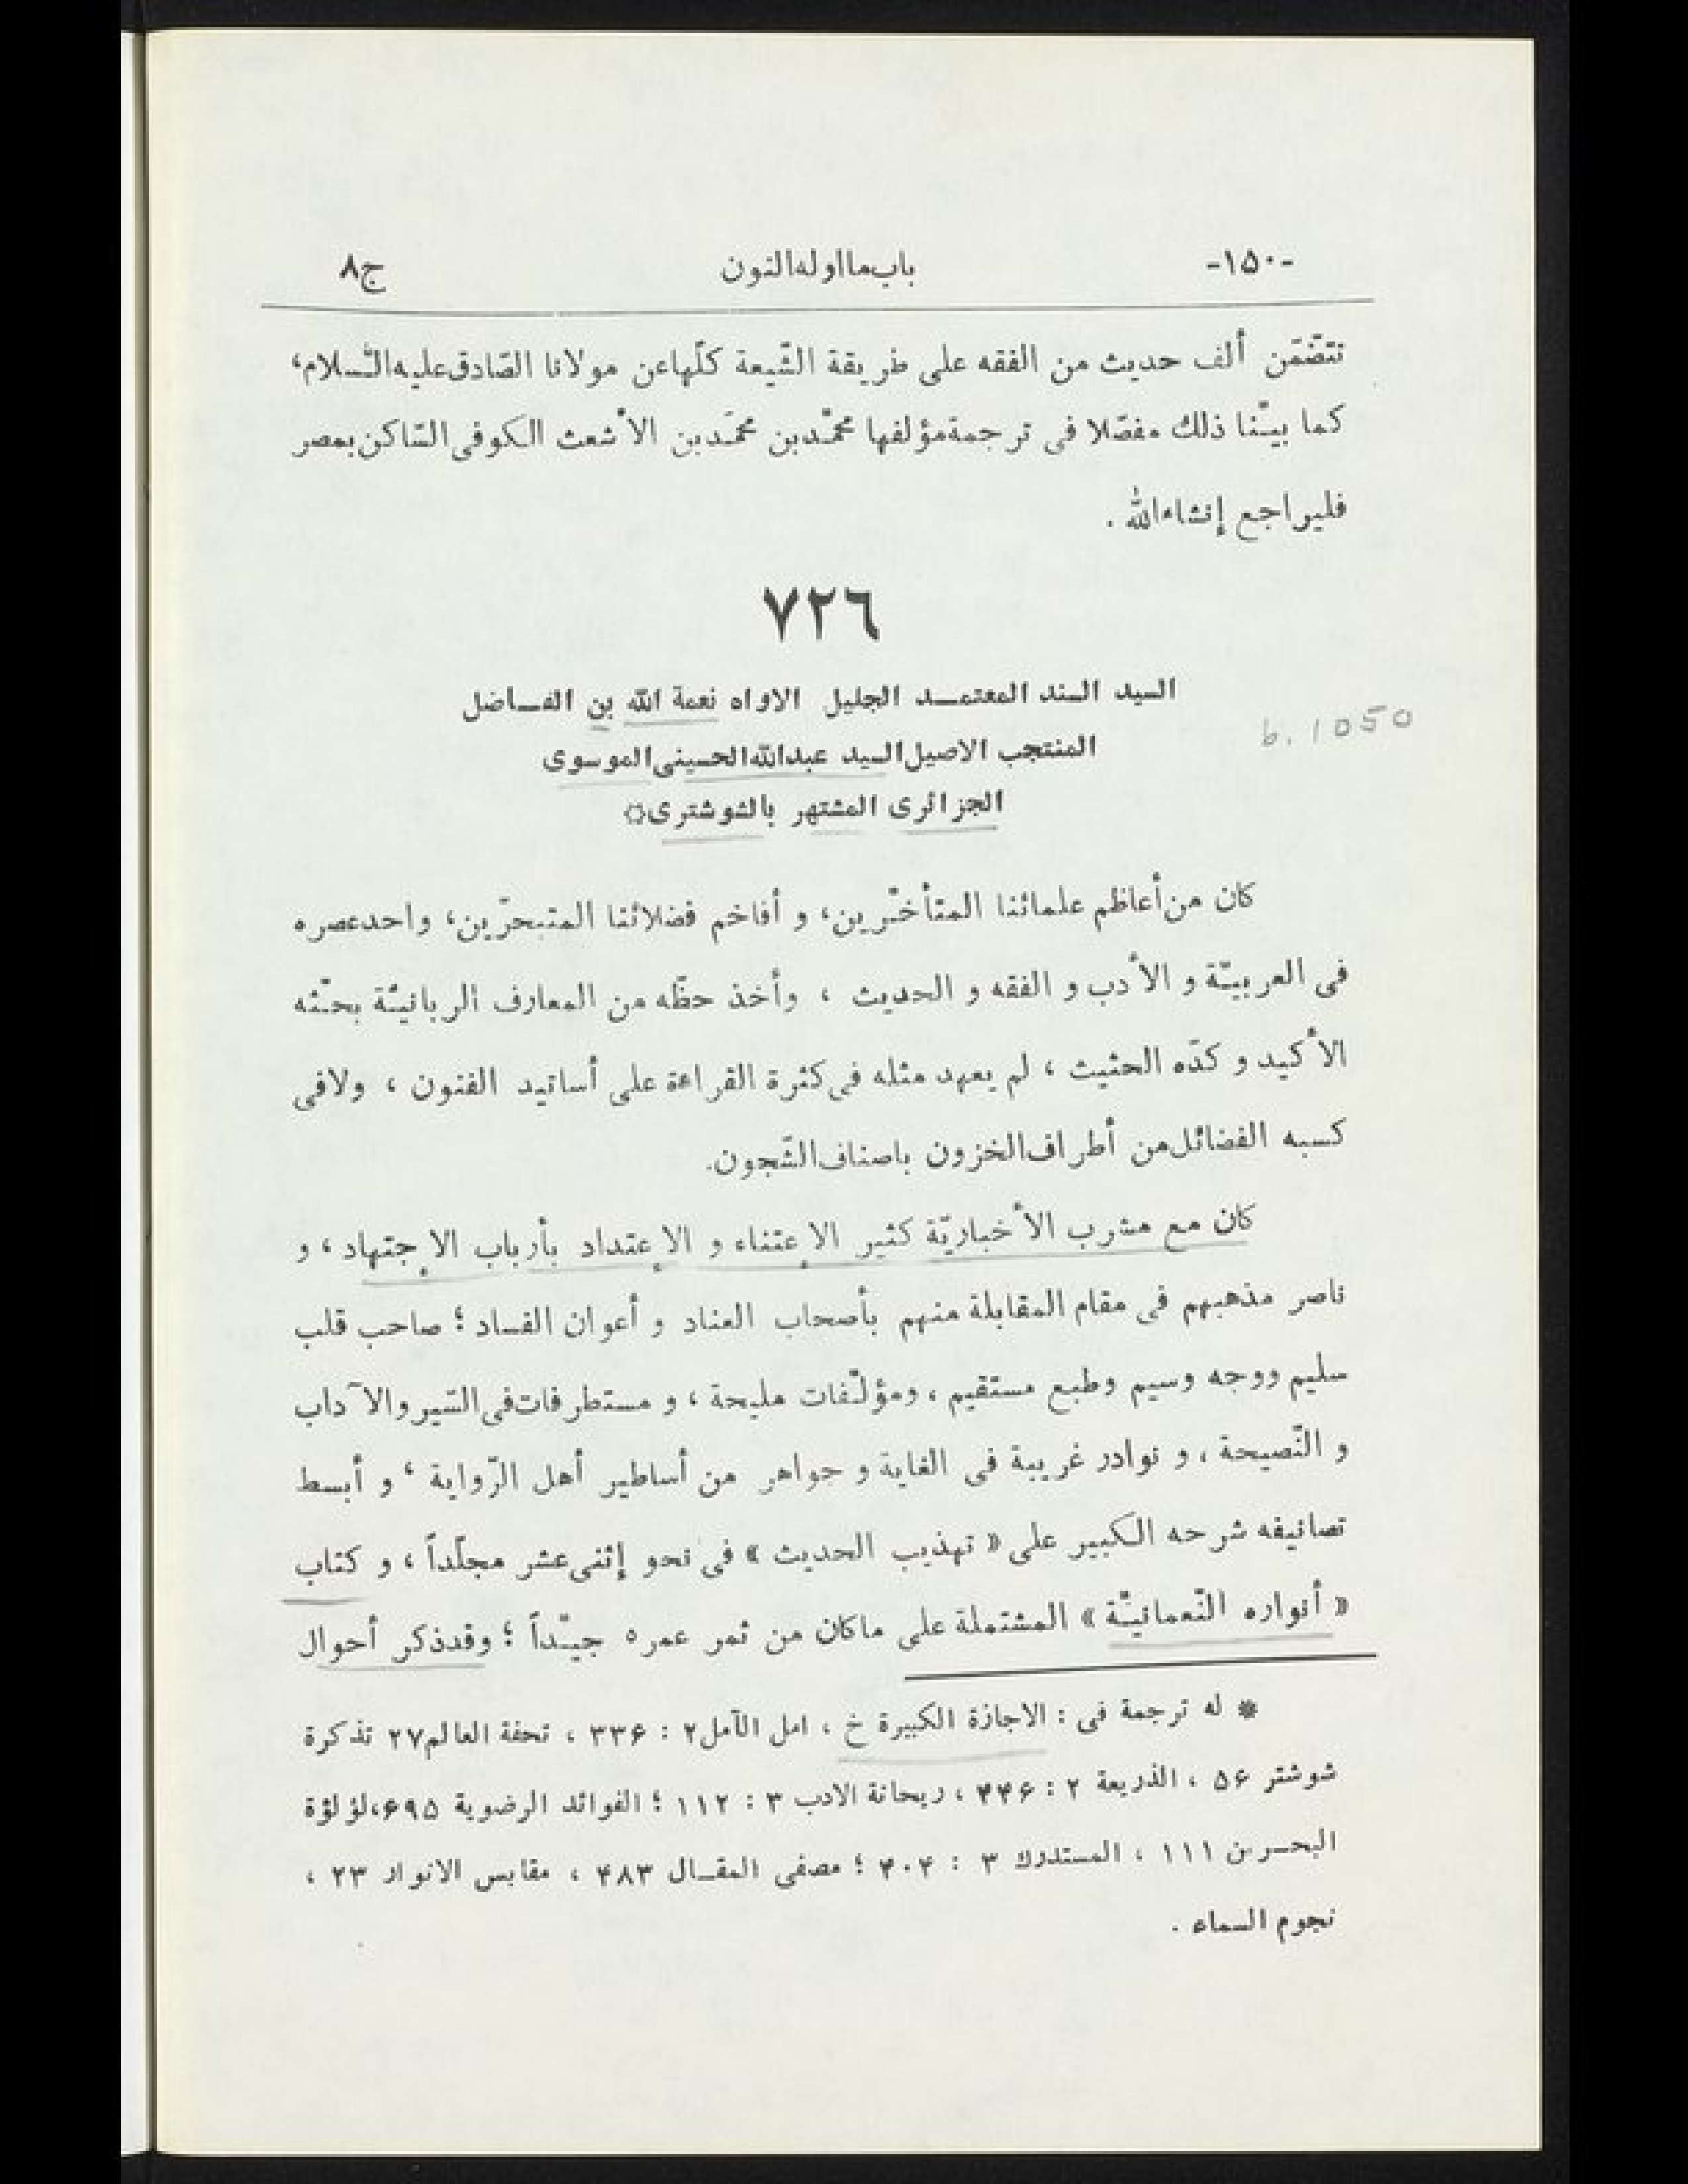 -۱۵۰- باب ما اوله النون ج۸
تتضّمَن ألف حديث من الفقه على طريقة الشّيعة كلّها عن مولانا الصّادق عليه السّلام،
كما بيّنا ذلك مفصّلا فى ترجمة مؤلفها محمّد بن محمّد بن الأشعث الكوفى السّاكن بمصر
فليراجع إنشاء الله .
٧٢٦
السيد السند المعتمد الجليل الاواه نعمة الله بن الفاضل
المنتجب الاصيل السيد عبدالله الحسينى الموسوى
b. 1050
الجزائرى المشتهر بالشوشترى☼
كان من أعاظم علمائنا المتأخّرين، و أفاخم فضلائنا المتبحرّين، واحد عصره
فى العربيّة و الأدب و الفقه و الحديث ، وأخذ حظّه من المعارف الربانيّة بحثّه
الأكيد و كدّه الحثيث ، لم يعهد مثله فى كثرة القراءة على أساتيد الفنون ، ولا فى
كسبه الفضائل من أطراف الخزون باصناف الشّجون.
كان مع مشرب الأخباريّة كثير الإعتناء و الإعتداد بأرباب الإجتهاد ، و
ناصر مذهبهم فى مقام المقابلة منهم بأصحاب العناد و أعوان الفساد ؛ صاحب قلب
سليم ووجه وسيم وطبع مستقيم ، ومؤلّفات مليحة ، و مستطرفات فى السّير والآداب
و النّصيحة ، و نوادر غريبة فى الغاية و جواهر من أساطير أهل الرّواية ، و أبسط
تصانيفه شرحه الكبير على « تهذيب الحديث » فى نحو إثنى عشر مجلّداً ، و كتاب
« أنواره النّعمانيّة » المشتملة على ما كان من ثمر عمره جيّداً ؛ وقد ذكر أحوال
* له ترجمة فى : الاجازة الكبيرة خ ، امل الآمل ۲ : ۳۳۶ ، تحفة العالم ۲۷ تذكرة
شوشتر ۵۶ ، الذريعة ۲ : ۴۴۶ ، ريحانة الادب ۳ : ۱۱۲ ؛ الفوائد الرضوية ۶۹۵، لؤلؤة
البحرين ۱۱۱ ، المستدرك ۳ : ۴۰۴ ؛ مصفى المقال ۴۸۳ ، مقابس الانوار ۲۳ ،
نجوم السماء .